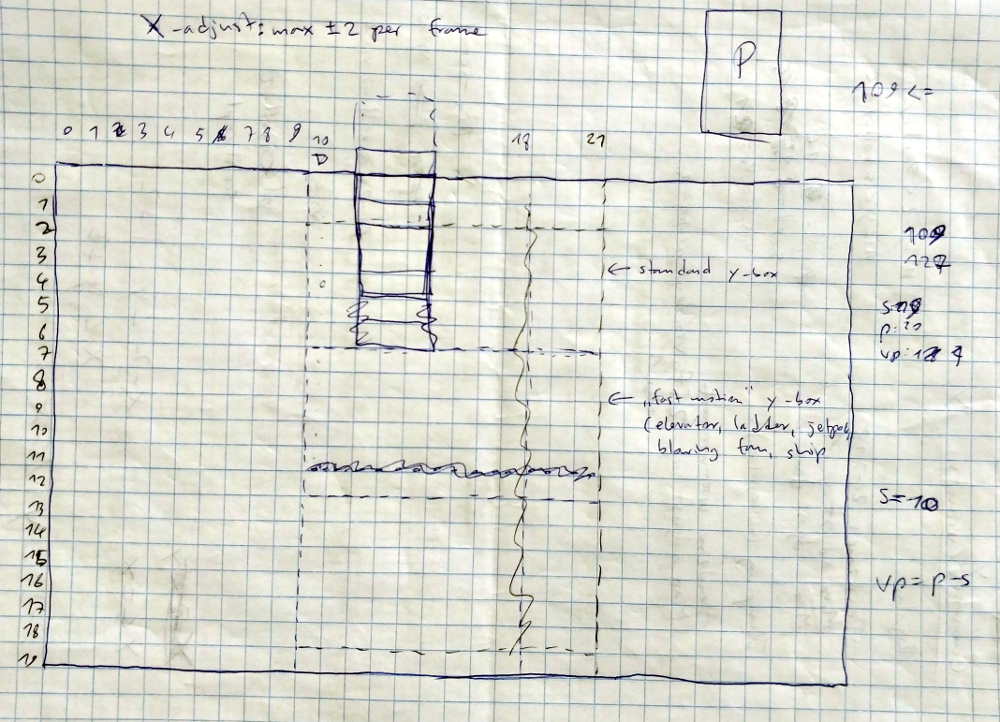 X-adjust: max ±2 per frame
P
109 <=
0 1 2 3 4 5 6 7 8 9 10 18 21
D
0
1
2
3
4
5
6
7
8
9
10
11
12
13
14
15
16
17
18
19
← standard y-box
← „fast motion" y-box
(elevator, ladder, jetpack,
blowing fan, ship
109
127
p: 20
S=-10
vp = p-s